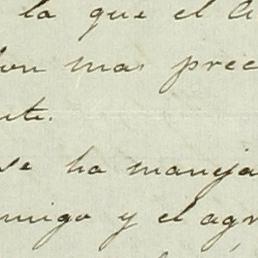 la que el A
on mas prec
te.
se ha maneja
migo y el agr